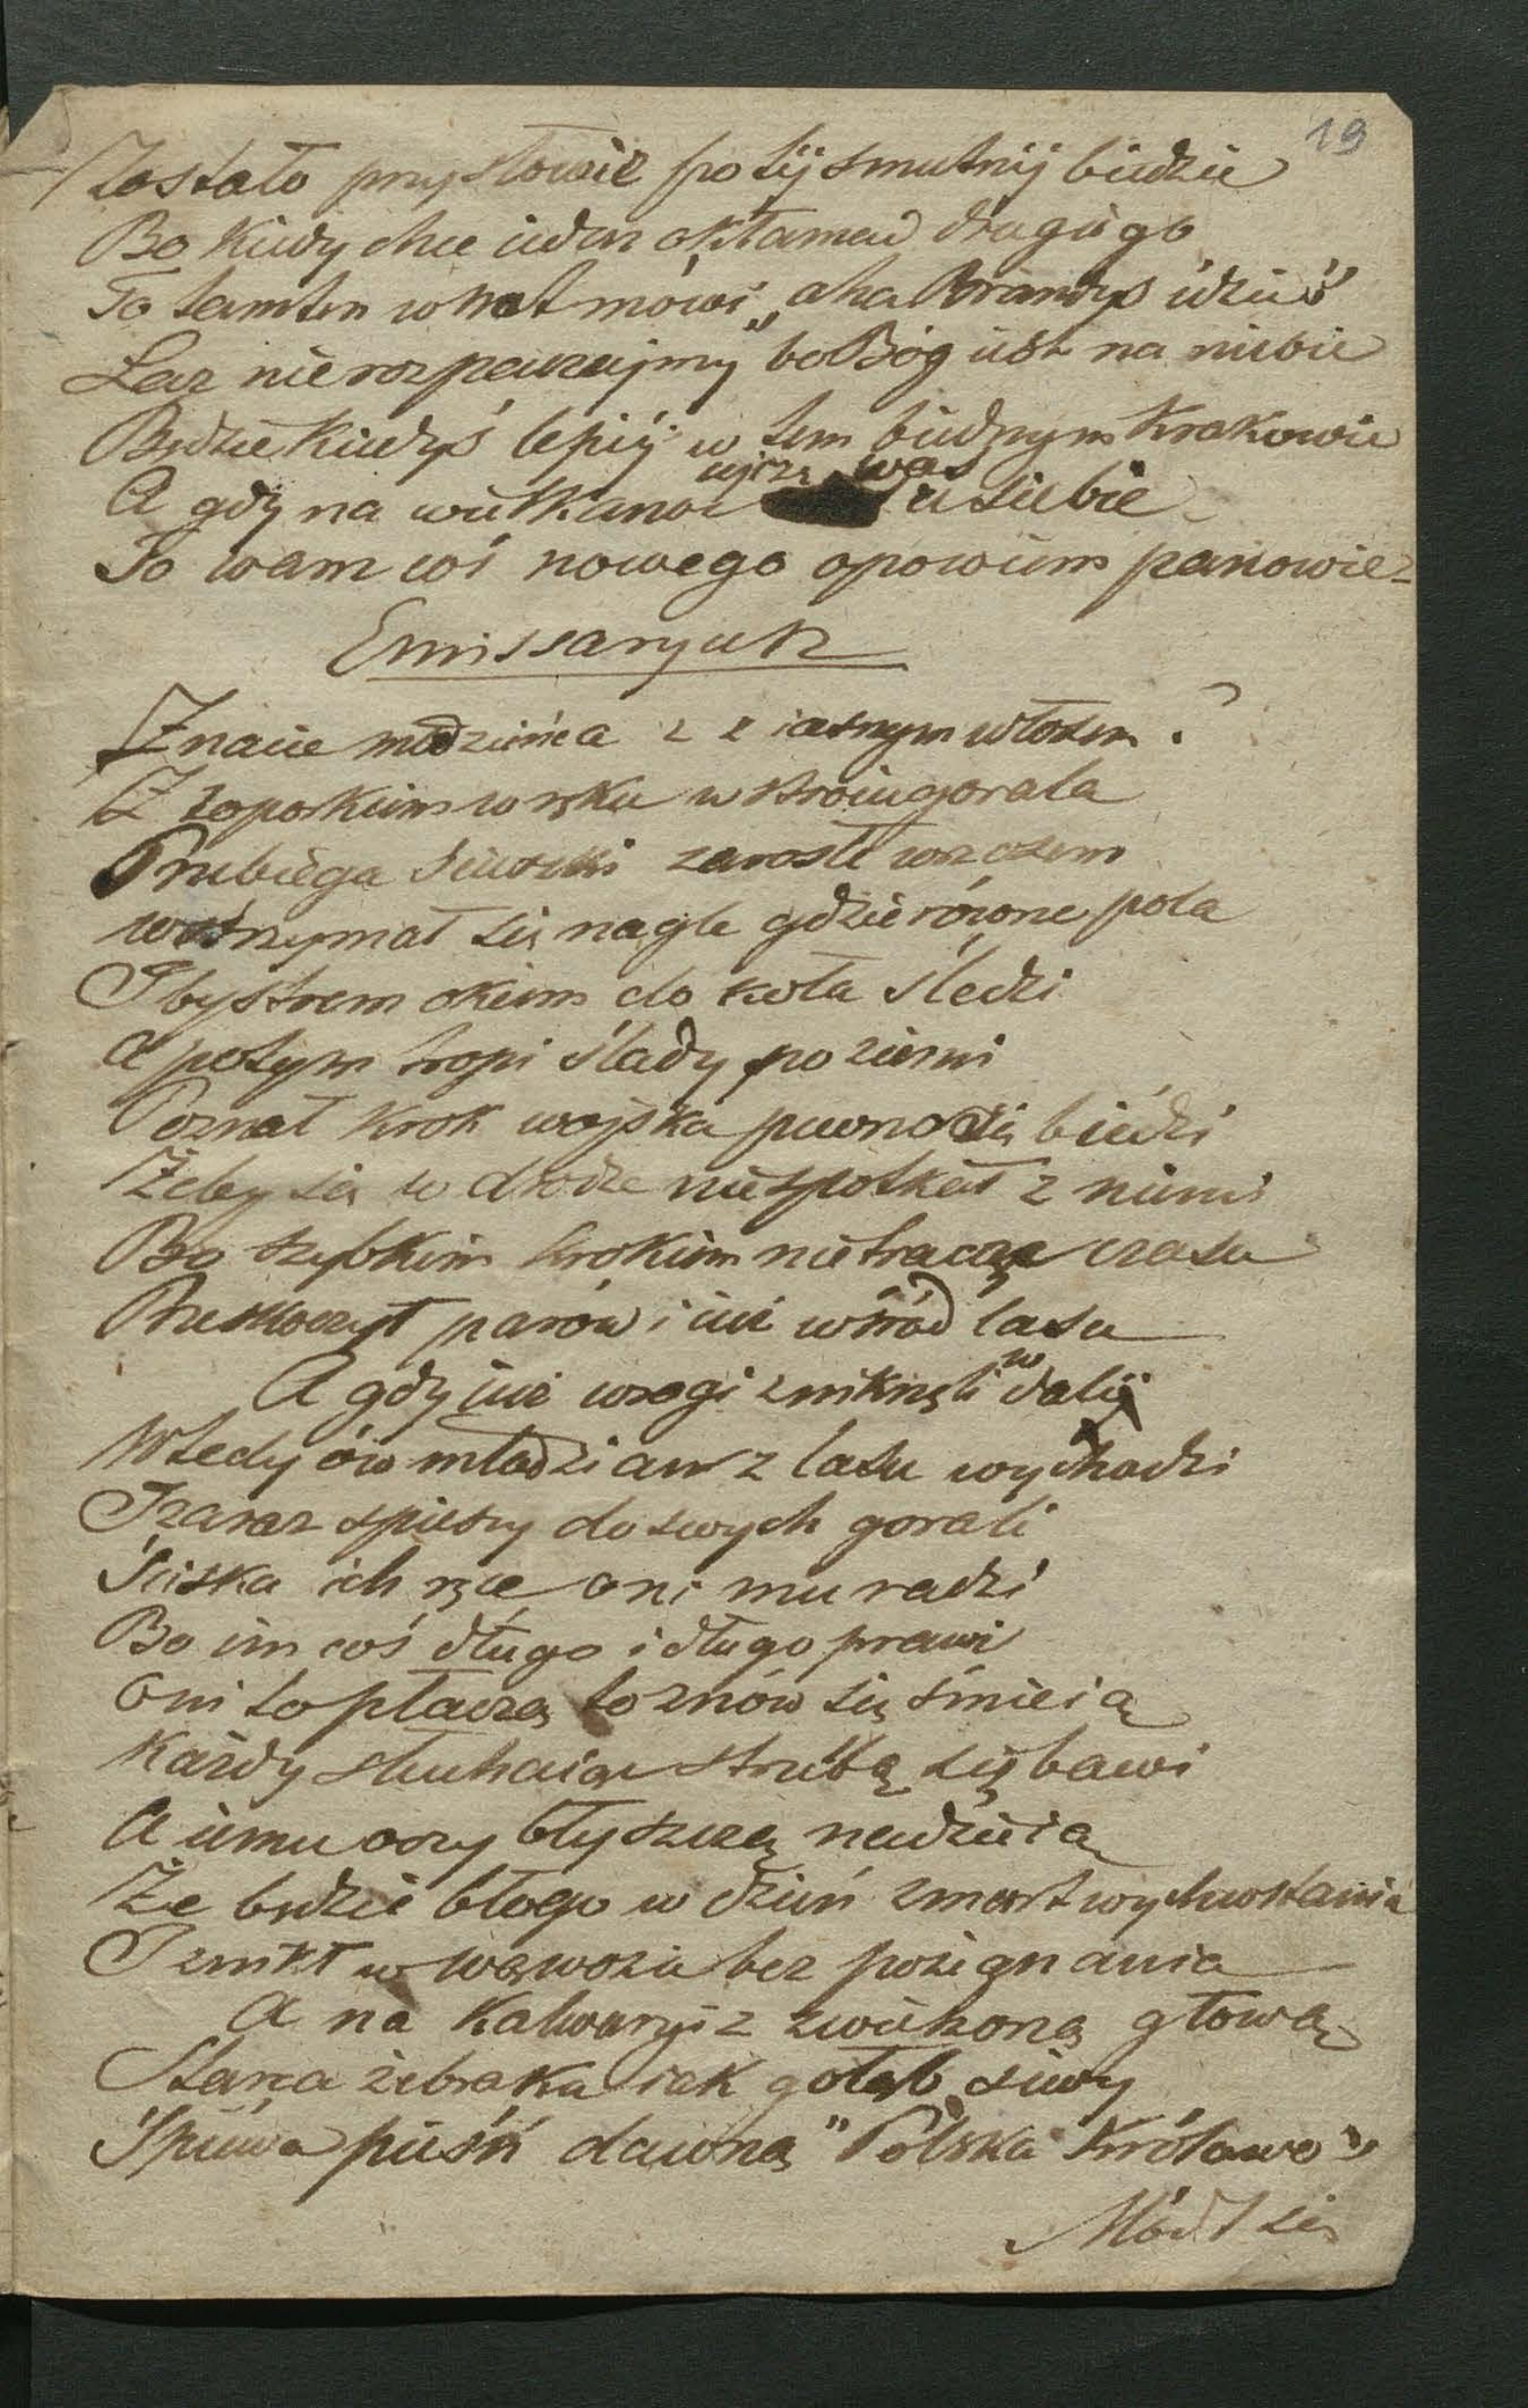 19
Zostało przysłowie po téj smutnéj biédzie
Bo kiedy chce ieden okłamać drugiego
To tamten wnet mówi „aha Brandys idzie"
Lecz nierozpaczajmy bo Bóg iest na niebie
Będzie kiedyś lepiéj w tem biednym Krakowie
A gdy na wielkanoc ujrzę was u siebie
To wam coś nowego opowiem panowie
Emissaryusz
Znacie młodzieńca z z iasnym włosem?
Z toporkiem w ręku w stroiu gorala
Przebiega scieszki zarosłe wrzosem
wstrzymał się nagle gdzie równe pola
I bystrem okiem do koła śledzi
A potym tropi ślady po ziemi
Poznał krok wojska pewno się biédzi
Żeby się w drodze niespotkał z niemi
Bo szybkim krokiem nietracąc czasu
Przeskoczył parów i iuż wśród lasu
A gdy iuż wrogi znikneli w daléj
Wtedy ów młodzian z lasu wychodzi
I zaraz spieszy do swych gorali
Sciska ich ręce oni mu radzi
Bo im coś długo i długo prawi
Oni to płaczą to znów się śmieią
Każdy słuhaiąc strzelbą się bawi
A iemu oczy błyszczą nadzieią
Że będzie błogo w dzień zmartwychwstania
I znikł w wąwozie bez pożegnania
A na Kalwaryi z zwieszoną głową
Starca żebraka iak gołąb siwy
Spiéwa pieśń dawną "Polska Królowo"
Módl się